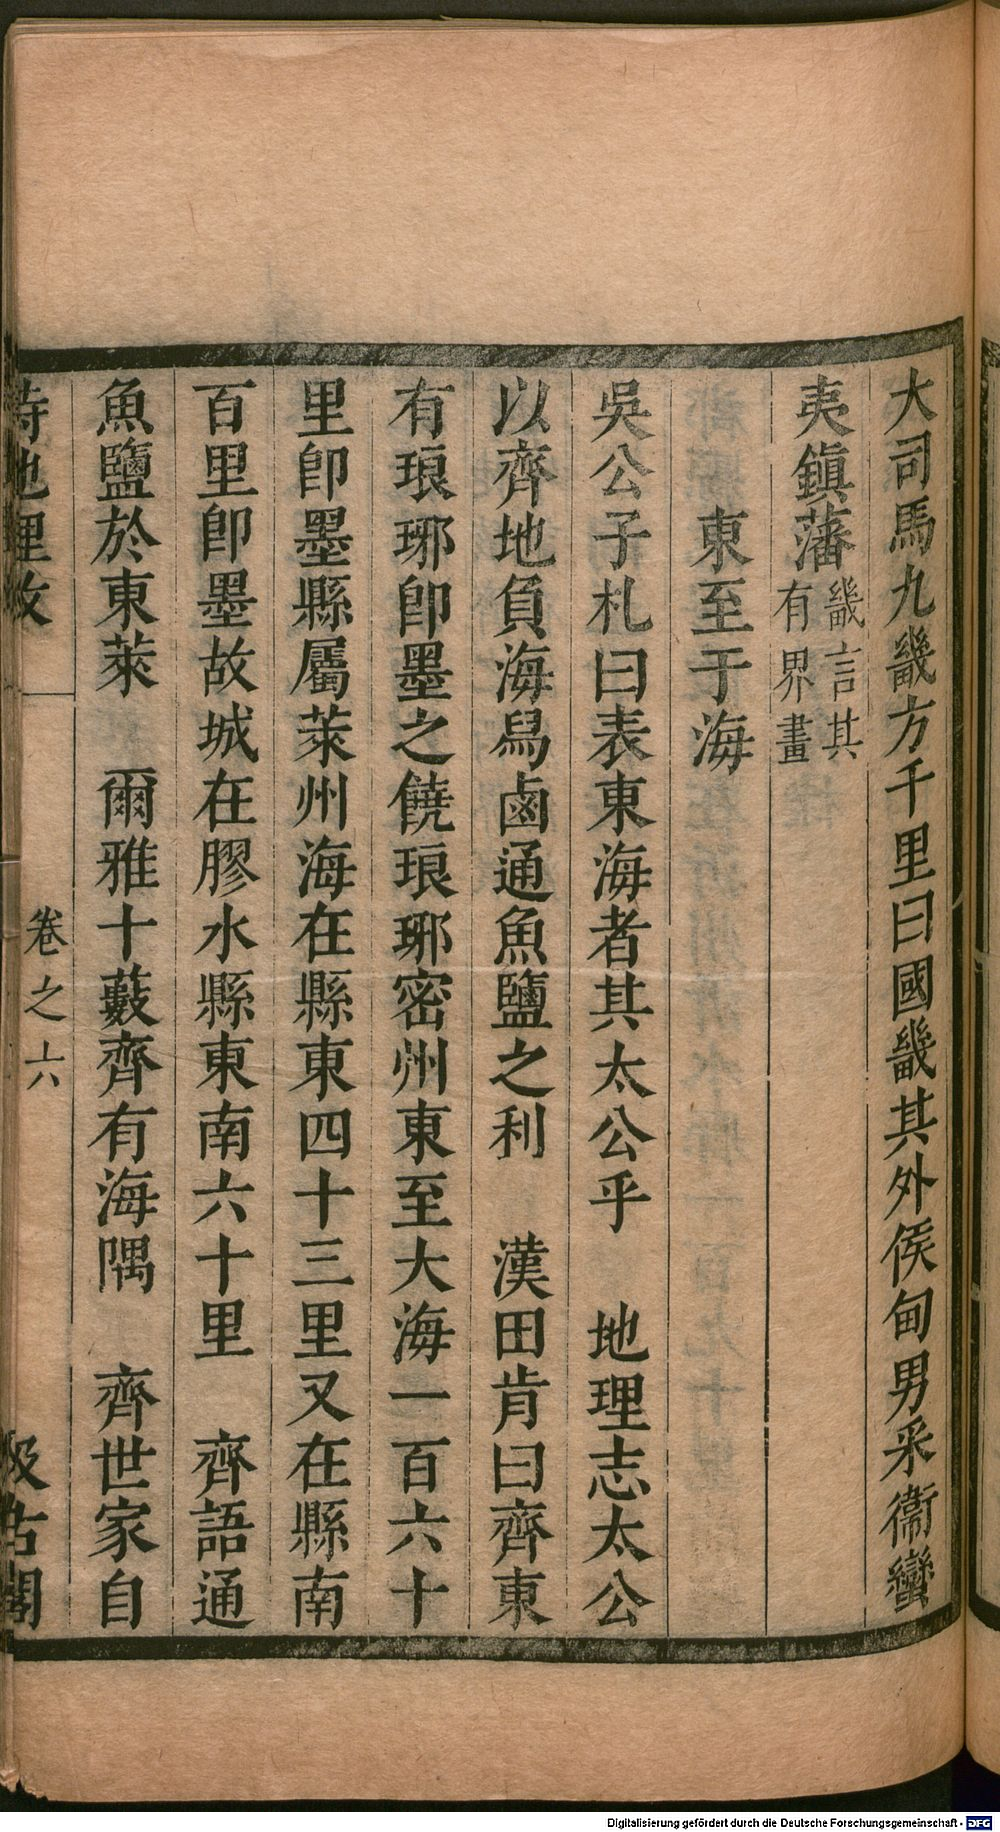 大司馬九畿方千里曰國畿其外侯甸男采衛蠻
夷鎮藩畿言其有界畫
東至于海
吳公子札曰表東海者其太公乎　地理志太公
以齊地負海舄鹵通魚鹽之利　漢田肯曰齊東
有琅琊卽墨之饒琅琊密州東至大海一百六十
里卽墨縣屬萊州海在縣東四十三里又在縣南
百里卽墨故城在膠水縣東南六十里　齊語通
魚鹽於東萊　爾雅十藪齊有海隅　齊世家自
詩地理攷　卷之六　汲古閣
Digitalisierung gefördert durch die Deutsche Forschungsgemeinschaft - DFG